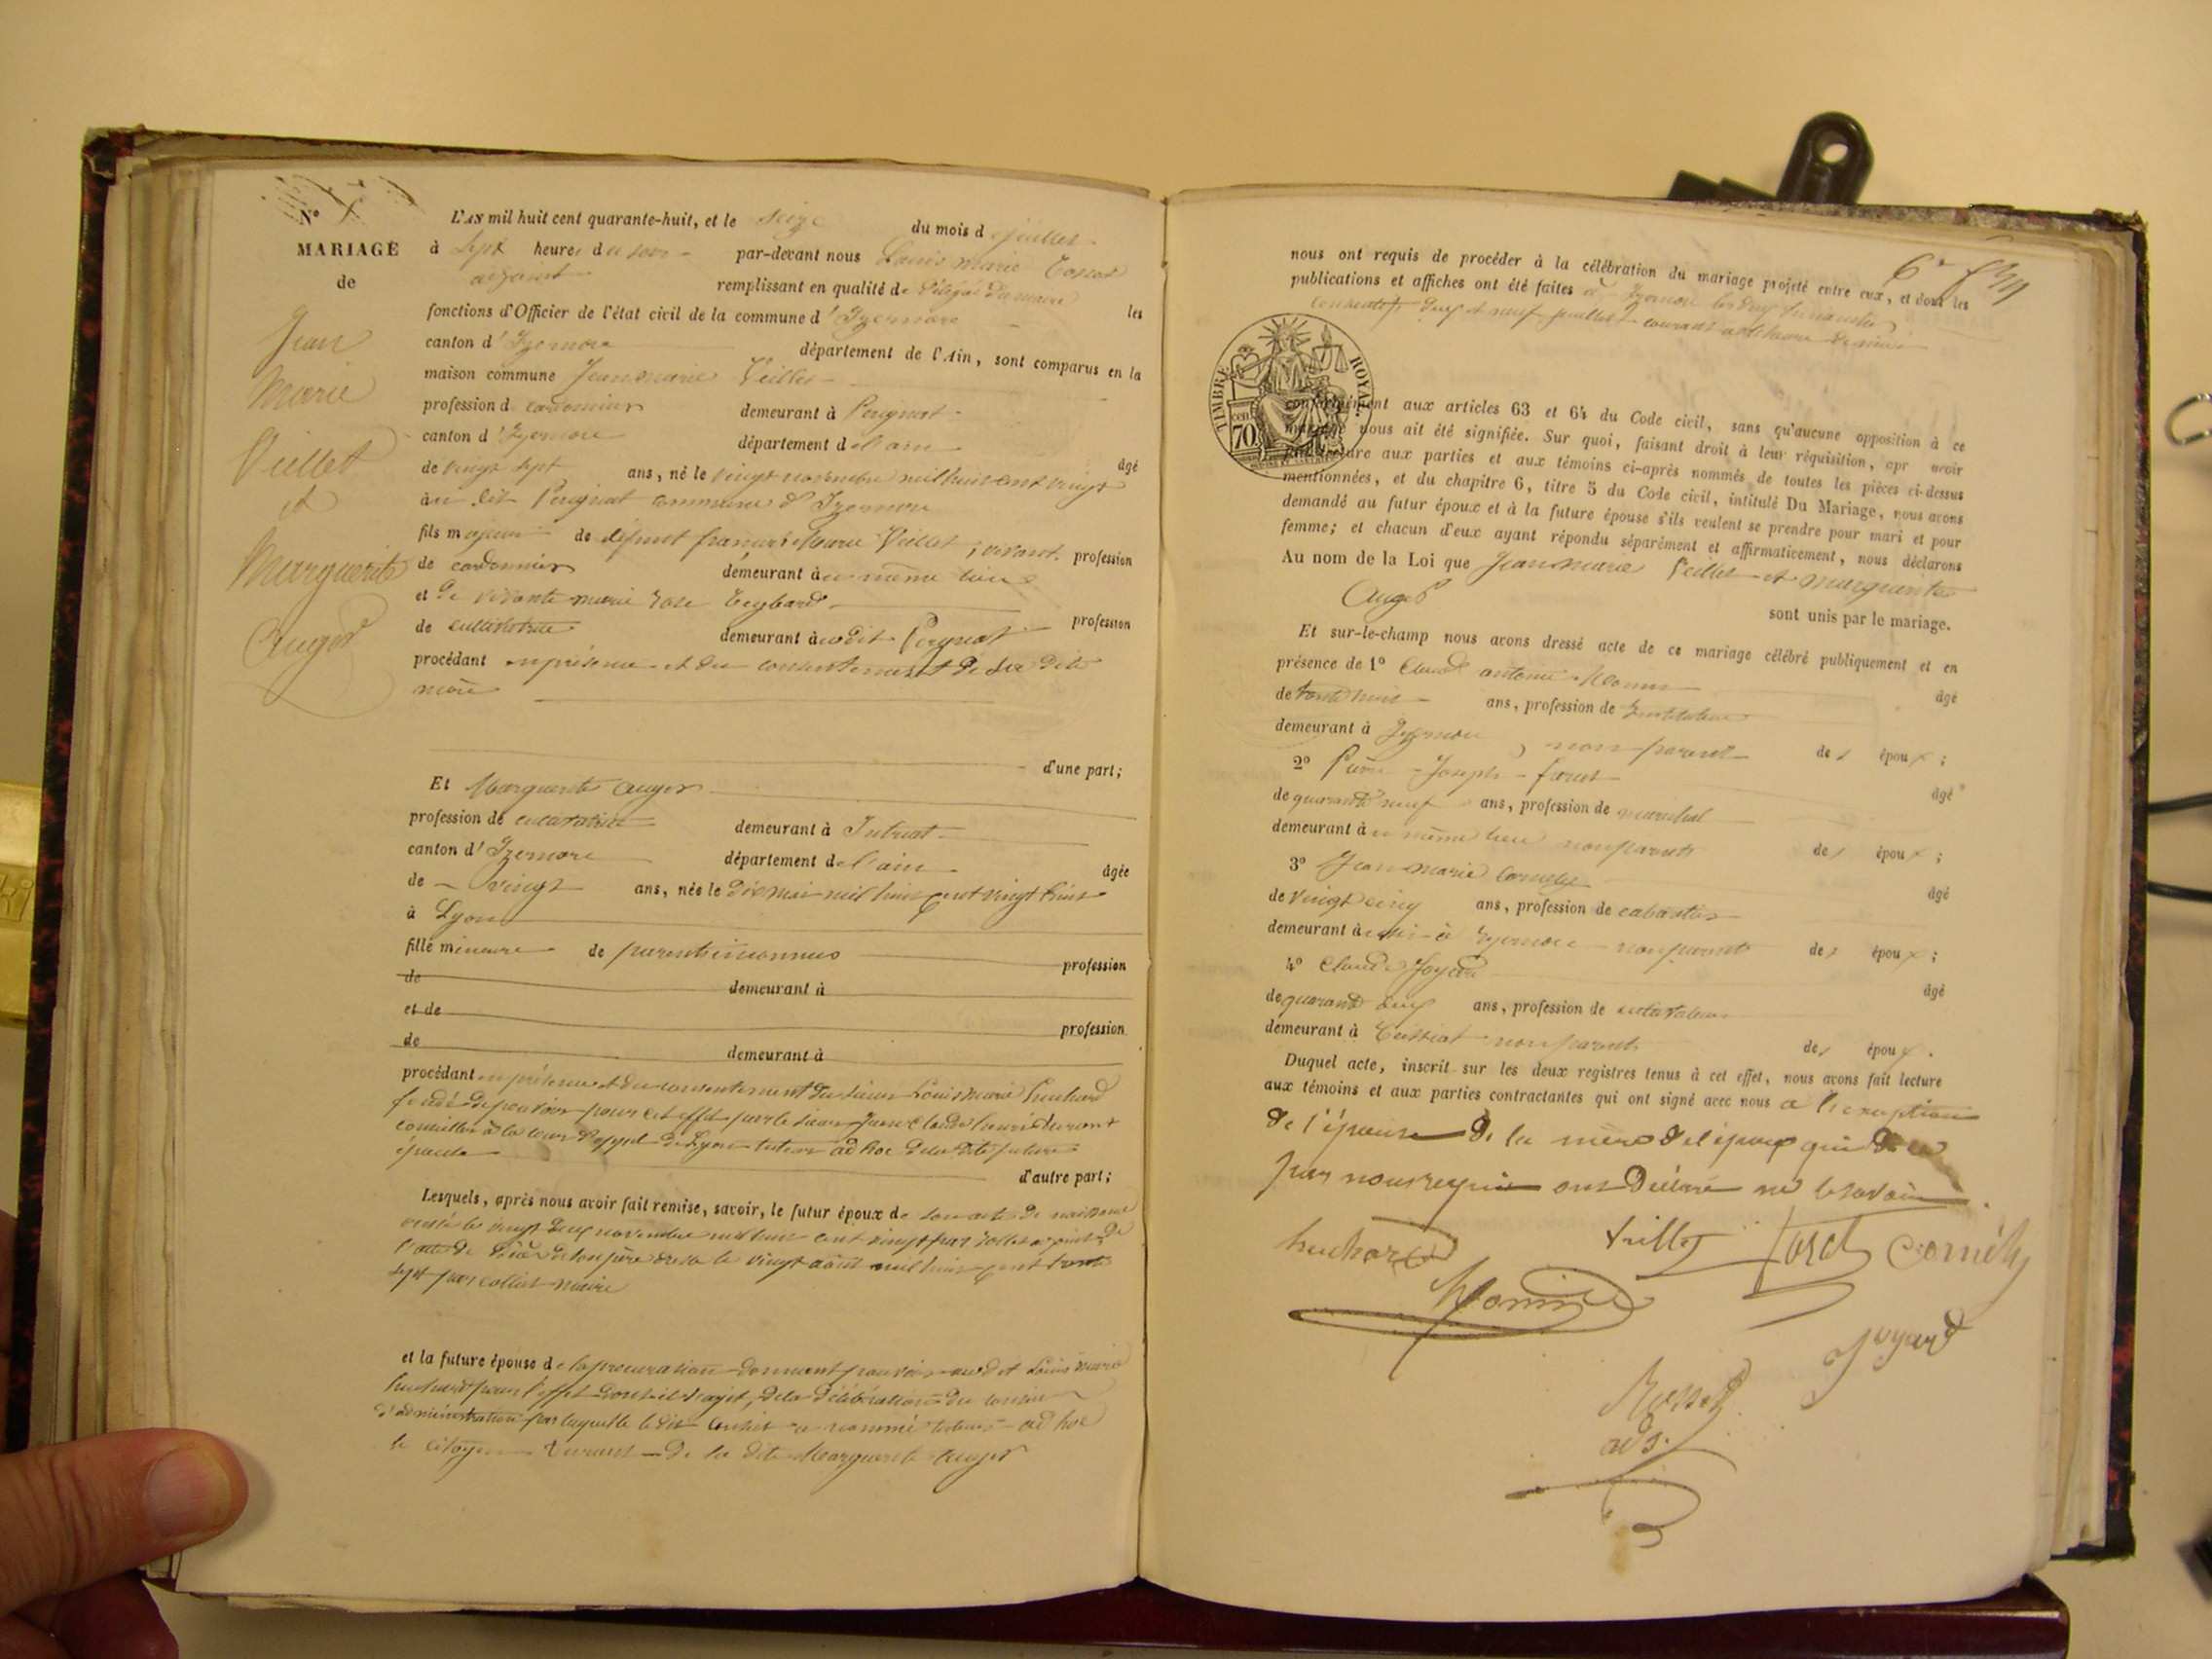 N°
MARIAGE
de
Jean
Marie
Veillet
et
Marguerite
Auger
L'AN mil huit cent quarante-huit, et le seize du mois de juillet
à sept heures du soir par-devant nous Louis Marie
adjoint remplissant en qualité de délégué du maire les
fonctions d'Officier de l'état civil de la commune d'Izernore
canton d'Izernore département de l'Ain, sont comparus en la
maison commune Jean marie Veillet
profession de cordonnier demeurant à Perignat
canton d'Izernore département de l'ain âgé
de vingt sept ans, né le vingt novembre mil huit cent vingt
au dit Perignat commune d'Izernore
fils majeur de défunt françois Marie Veillet, vivant profession
de cordonnier demeurant au même lieu
et de vivante marie rose profession
de cultivatrice demeurant au dit Perignat
procédant en présence et du consentement de sa dite
mère
d'une part;
Et Marguerite Auger
profession de cultivatrice demeurant à Intriat
canton d'Izernore département de l'ain âgée
de vingt ans, née le dix mai mil huit cent vingt huit
à Lyon
fille mineure de parents inconnus profession
de demeurant à
et de profession
de demeurant à
procédant en présence et du consentement du sieur Louis Marie Huchard
fondé de pouvoir pour cet effet par le sieur Jean Claude henri durant
conseiller à la cour d'appel de Lyon tuteur ad hoc de la dite future
épouse
d'autre part;
Lesquels, après nous avoir fait remise, savoir, le futur époux de son acte de naissance
le vingt deux novembre mil huit cent vingt par adjoint, de
l'acte de décès de son père le vingt août mil huit cent trente
sept par maire
et la future épouse de la procuration donnant pouvoir au dit Louis marie
huchard pour l'effet dont il s'agit, de la délibération du conseil
d'administration par laquelle le dit conseil a nommé tuteur ad hoc
le citoyen durant de la dite Marguerite Auger
nous ont requis de procéder à la célébration du mariage projeté entre eux, et dont les
publications et affiches ont été faites à Izernore les deux dimanches
consécutifs deux et neuf juillet courant à
TIMBRE ROYAL
cen
70
conformément aux articles 63 et 64 du Code civil, sans qu'aucune opposition à ce
mariage nous ait été signifiée. Sur quoi, faisant droit à leur réquisition, apr avoir
lecture aux parties et aux témoins ci-après nommés de toutes les pièces ci-dessus
mentionnées, et du chapitre 6, titre 5 du Code civil, intitulé Du Mariage, nous avons
demandé au futur époux et à la future épouse s'ils veulent se prendre pour mari et pour
femme; et chacun d'eux ayant répondu séparément et affirmativement, nous déclarons
Au nom de la Loi que Jean marie Veillet et marguerite
Auger sont unis par le mariage.
Et sur-le-champ nous avons dressé acte de ce mariage célébré publiquement et en
présence de 1° Claude antoine Monin âgé
de trente huit ans, profession de Instituteur
demeurant à Izernore, non parent des époux;
2° Pierre Joseph foret âgé
de quarante neuf ans, profession de marechal
demeurant au même lieu non parent des époux;
3° Jean marie Cornely âgé
de vingt cinq ans, profession de cabaretier
demeurant aussi à Izernore non parent des époux;
4° Claude Joyard âgé
de quarante deux ans, profession de cultivateur
demeurant à Ceissiat non parent des époux.
Duquel acte, inscrit sur les deux registres tenus à cet effet, nous avons fait lecture
aux témoins et aux parties contractantes qui ont signé avec nous à l'exception
de l'épouse de la mère de l'époux qui de ce
par nous requis ont déclaré ne le savoir.
huchard veillet foret Cornély
Monin
Joyard